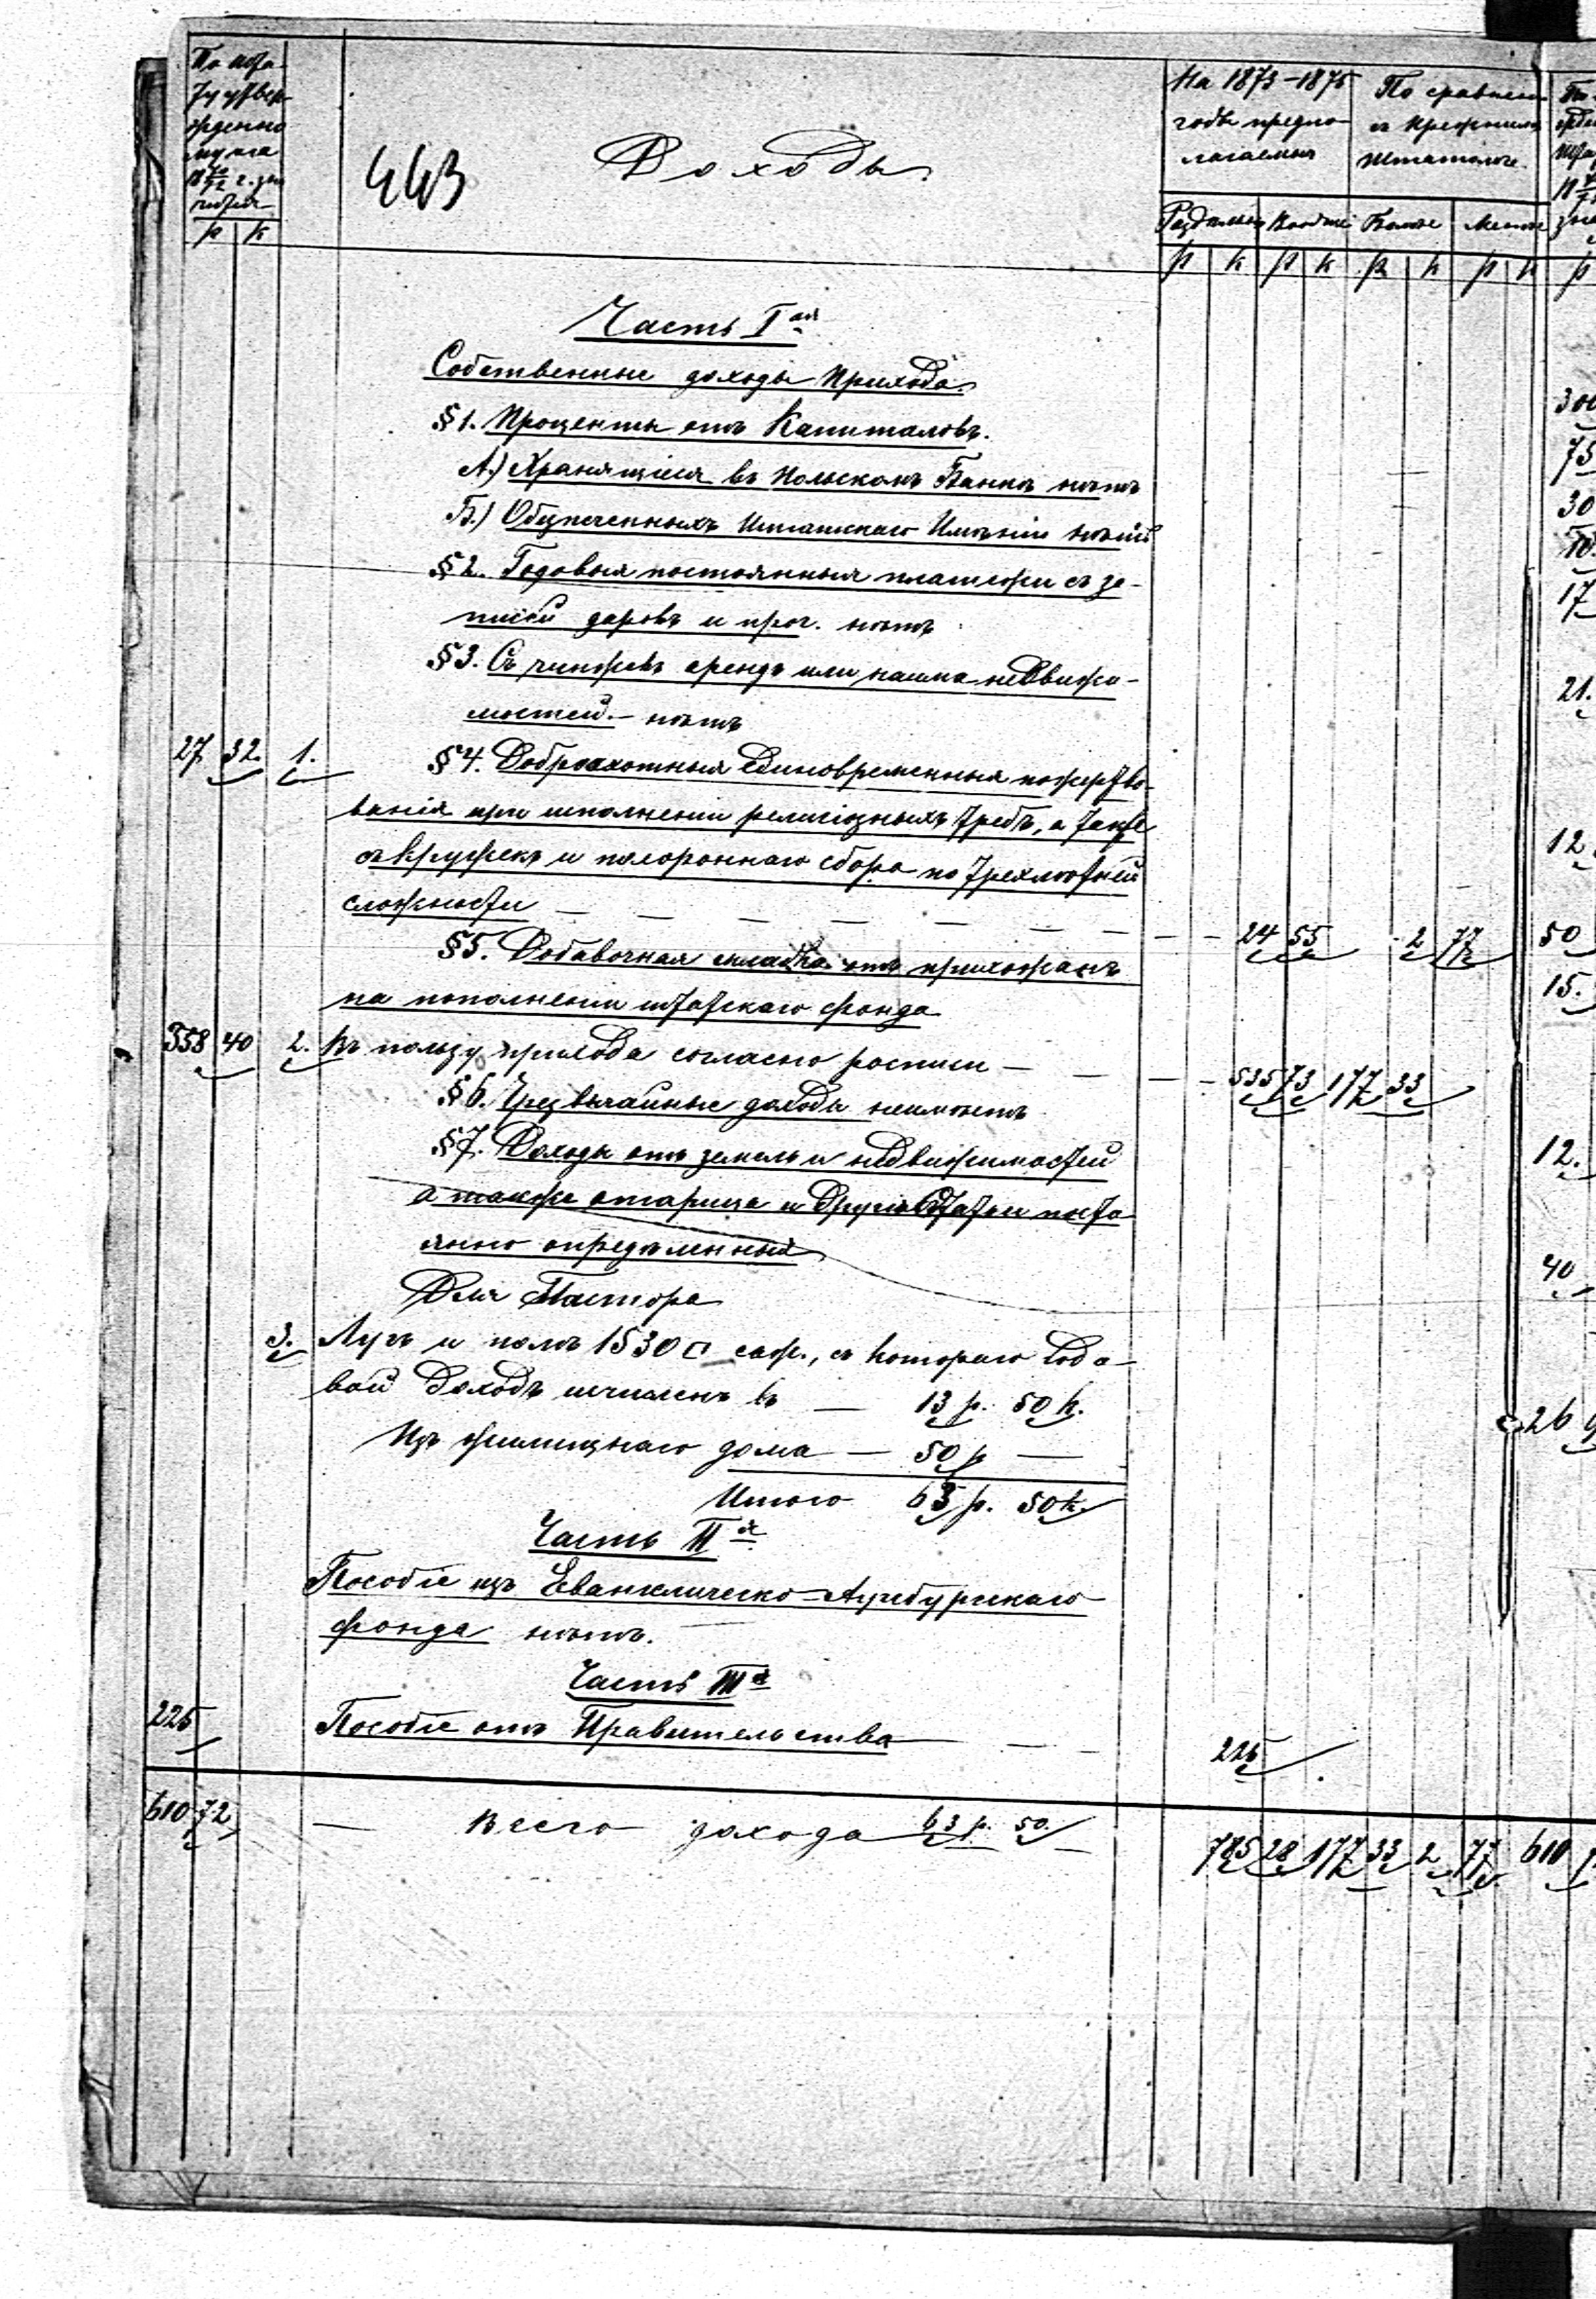 По шта-
ту утвер-
жденно
му на
18 70/72 г. зна
чится
р к
443
Доходы
На 1873-1875
годы предпо
лагаемыя
По сравнен.
съ прежнимъ
штатомъ
Раздельно Вообще Более Менее
р к р к р к р к
Часть I ая
Собственные доходы Прихода
§ 1. Проценты отъ Капиталовъ.
А.) Хранящіеся въ Польскомъ Банке нетъ
Б.)
§ 2. Годовыя постоянныя платежи съ за-
писей даровъ и проч. нетъ
§ 3. Съ чиншевъ арендъ или найма недвижи-
мостей. - нетъ
27 32. 1. § 4. Доброхотныя единовременныя пожертво-
ванія при исполненіи религіозныхъ требъ, а также
съ кружекъ и посторонняго сбора по трехлетней
сложности — — — — — — — 24 55 - 2 77
§ 5. Добавочная складка отъ прихожанъ
на пополненіи штатскаго фонда
358 40 2. въ пользу прихода согласно росписи — — — 535 73 177 33
§ 6. Чрезвычайные доходы неиметъ
§ 7. Доходы отъ земель и недвижимостей
а также и другія статьи посто
янно определенный
Для Пастора
3. Лугъ и поле 1530 □ саж., съ котораго годо-
вой доходъ исчисленъ въ — 13 р. 50 к.
Изъ жилищнаго дома — 50 р —
Итого 63 р. 50 к.
Часть II я
Пособіе изъ Евангелическо-Аугсбургскаго
фонда нетъ.
Часть III я
225 Пособіе отъ Правительства — — 225
610 72 — Всего дохода 63 р. 50. — 785 28 177 33 2 77 610
300
75
30
50
17
21.
12
50
15.
12.
40
26